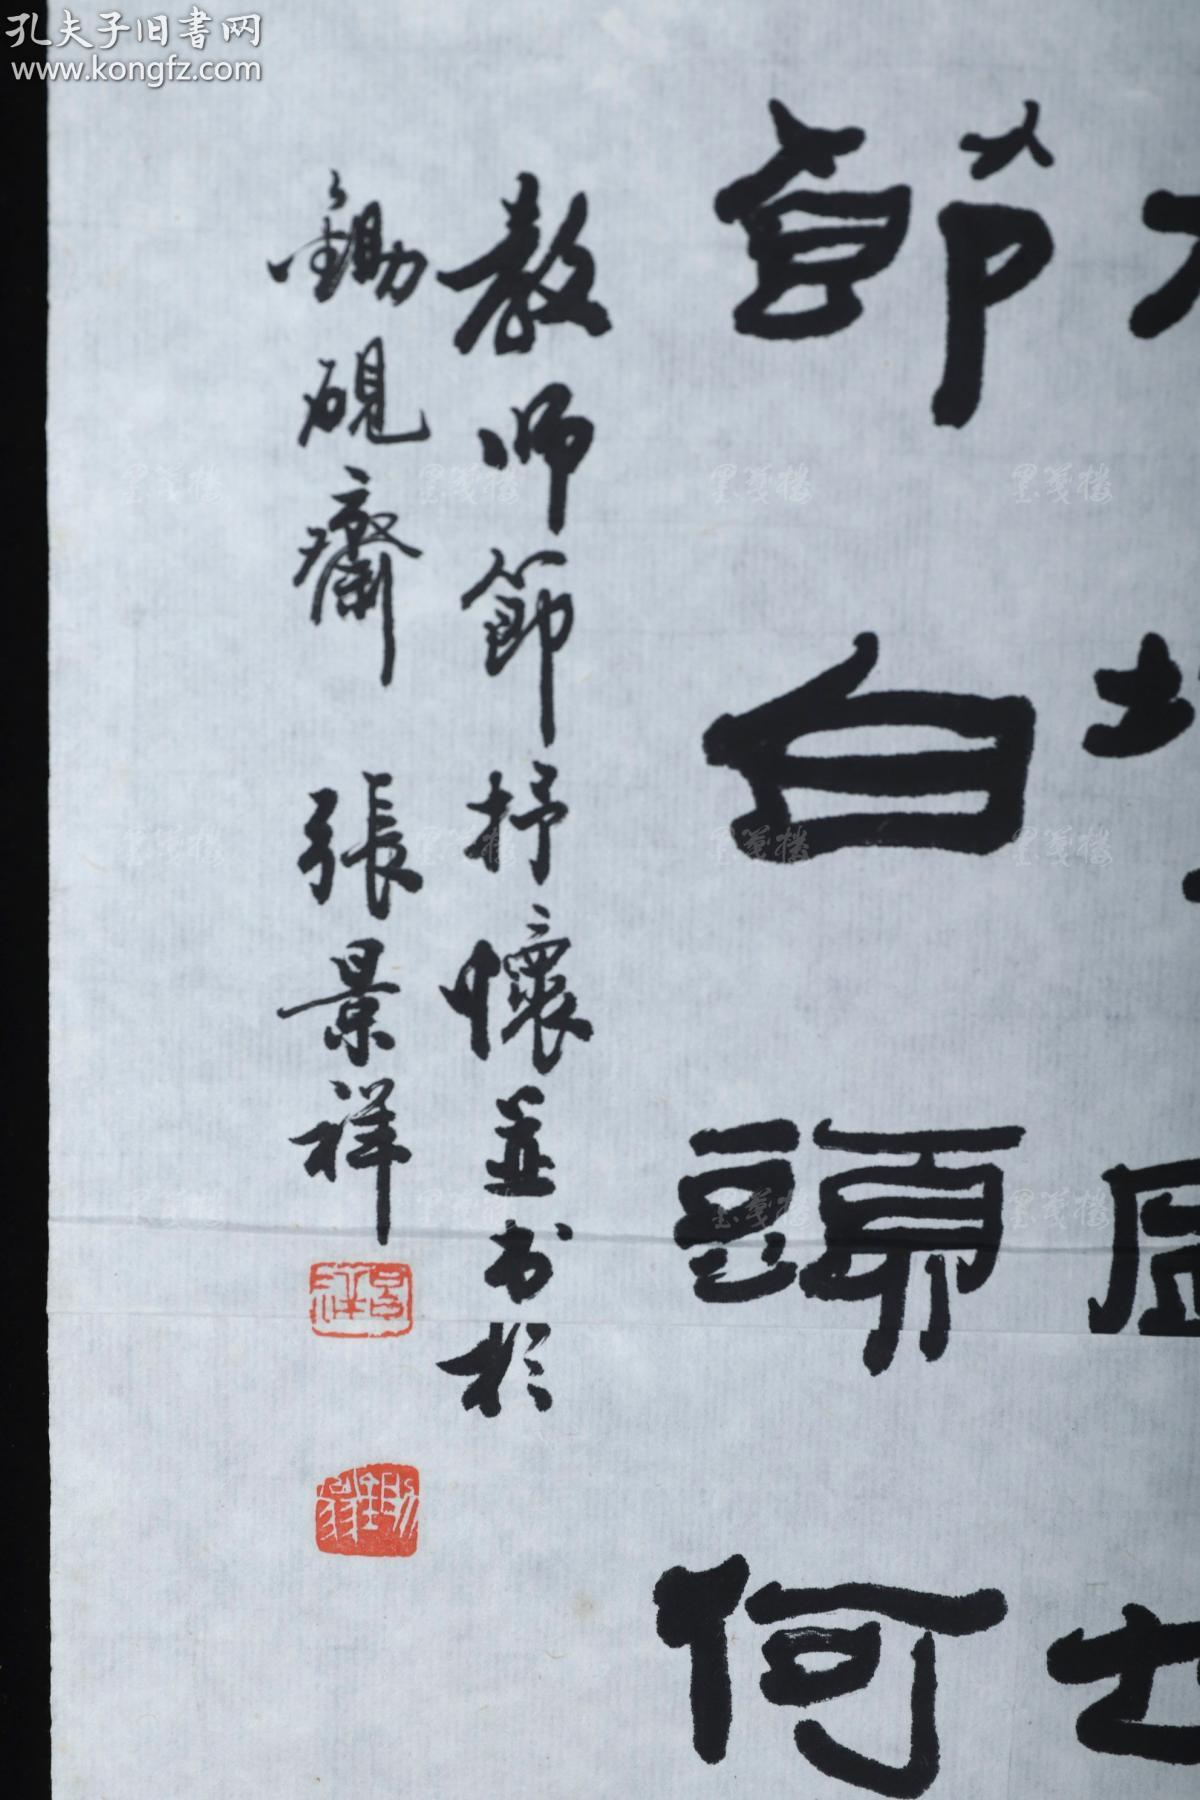 孔夫子旧書网
www.kongfz.com
節白頭何
教师節抒懷並书於
鋤硯齋 張景祥
墨笺楼